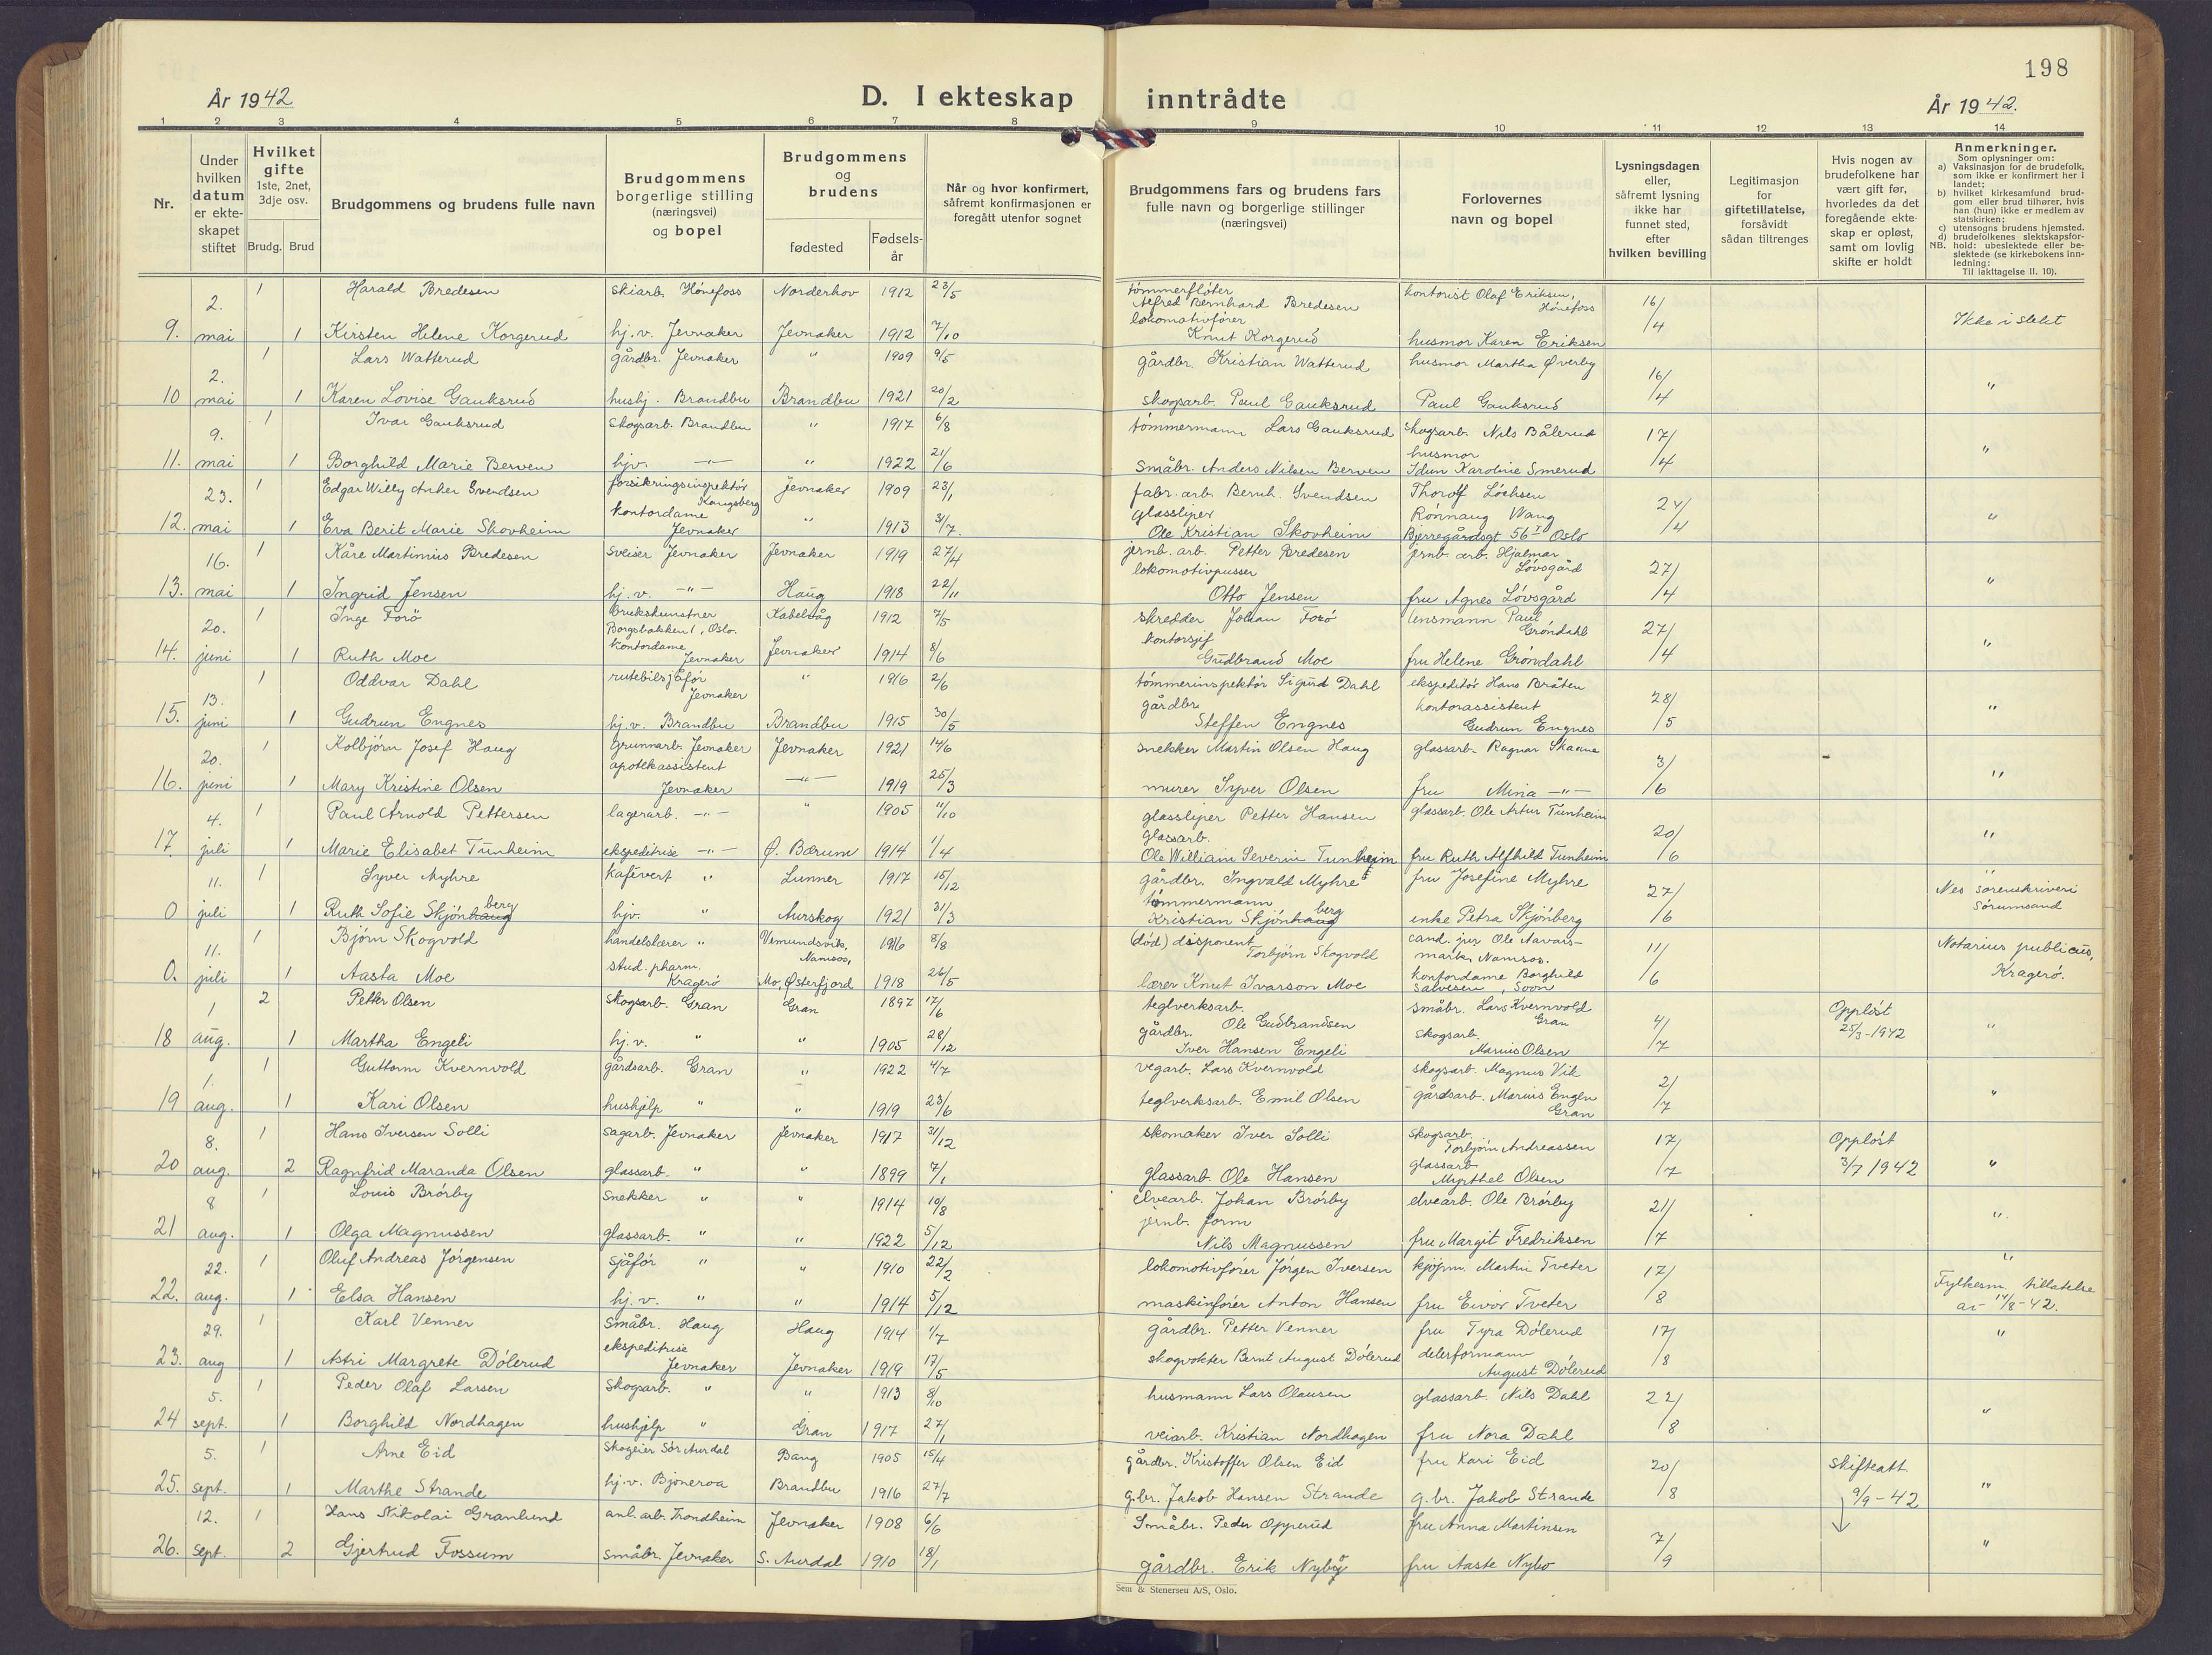 198
År 1942
D. I ekteskap inntrådte
År 1942.
1 2 3 4 5 6 7 8 9 10 11 12 13 14
Nr.
Under hvilken datum er ekteskapet stiftet
Hvilket gifte 1ste, 2net, 3dje osv.
Brudg. Brud
Brudgommens og brudens fulle navn
Brudgommens borgerlige stilling (næringsvei) og bopel
Brudgommens og brudens
fødested
Fødselsår
Når og hvor konfirmert, såfremt konfirmasjonen er foregått utenfor sognet
Brudgommens fars og brudens fars fulle navn og borgerlige stillinger (næringsvei)
Forlovernes navn og bopel
Lysningsdagen eller, såfremt lysning ikke har funnet sted, efter hvilken bevilling
Legitimasjon for giftetillatelse, forsåvidt sådan tiltrenges
Hvis nogen av brudefolkene har vært gift før, hvorledes da det foregående ekteskap er opløst, samt om lovlig skifte er holdt
Anmerkninger.
Som oplysninger om:
a) Vaksinasjon for de brudefolk, som ikke er konfirmert her i landet;
b) hvilket kirkesamfund brudgom eller brud tilhører, hvis han (hun) ikke er medlem av statskirken;
c) utensogns brudens hjemsted.
d) brudefolkenes slektskapsforhold: ubeslektede eller beslektede (se kirkebokens innledning:
NB. Til iakttagelse II. 10).
2. 1 Harald Bredesen skiarb. Hönefoss Norderhov 1912 23/5 tömmerflöter Alfred Bernhard Bredesen kontorist Olaf Eriksen, Hönefoss 16/4
9. mai 1 Kirsten Helene Korgerud hj.v. Jevnaker Jevnaker 1912 7/10 lokomotivförer Knut Korgerud husmor Karen Eriksen Ikke i slekt
2. 1 Lars Watterud gårdbr. Jevnaker " 1909 9/5 gårdbr. Kristian Watterud husmor Martha Øverby 16/4
10 mai 1 Karen Lovise Gauksrud hushj. Brandbu Brandbu 1921 20/2 skogsarb. Paul Gauksrud Paul Gauksrud "
9. 1 Ivar Gauksrud skogsarb. Brandbu " 1917 6/8 tömmermann Lars Gauksrud skogsarb. Nils Bålerud 17/4
11. mai 1 Borghild Marie Berven hjv. -"- " 1922 21/6 småbr. Anders Nilsen Berven husmor Idun Karoline Smerud "
23. 1 Edgar Willy Anker Svendsen forsikringsinspektör Kongsberg Jevnaker 1909 23/1 fabr.arb. Bernh. Svendsen Thorolf Löchsen 24/4
12. mai 1 Eva Berit Marie Skovheim kontordame Jevnaker " 1913 3/7. glassliper Ole Kristian Skovheim Rönnaug Wang Bjerregårdsgt 56 I Oslo "
16. 1 Kåre Martinius Bredesen sveiser Jevnaker Jevnaker 1919 27/4 jernb. arb. Petter Bredesen jernb. arb. Hjalmar Lövsgård 27/4
13. mai 1 Ingrid Jensen hj.v. -"- Haug 1918 22/11 lokomotivpusser Otto Jensen fru Agnes Lövsgård "
20. 1 Inge Forö brukskunstner Borgsbakken 1, Oslo. Kabelvåg 1912 7/5 skredder Johan Forö lensmann Paul Gröndahl 27/4
14. juni 1 Ruth Moe kontordame Jevnaker Jevnaker 1914 8/6 kontorsjef Gudbrand Moe fru Helene Gröndahl "
13. 1 Oddvar Dahl rutebilsjåför Jevnaker " 1916 2/6 tömmerinspektör Sigurd Dahl ekspeditör Hans Bråten 28/5
15. juni 1 Gudrun Engnes hj.v. Brandbu Brandbu 1915 30/5 gårdbr. Steffen Engnes kontorassistent Gudrun Engnes "
20. 1 Kolbjörn Josef Haug grunnarb. Jevnaker Jevnaker 1921 14/6 snekker Martin Olsen Haug glassarb. Ragnar 3/6
16. juni 1 Mary Kristine Olsen apotekassistent Jevnaker -"- 1919 25/3 murer Syver Olsen fru Mina -"- "
4. 1 Paul Arnold Pettersen lagerarb. -"- " 1905 11/10 glassliper Petter Hansen glassarb. Ole Artur Tunheim 20/6
17. juli 1 Marie Elisabet Tunheim ekspeditrise -"- Ø. Bærum 1914 1/4 glassarb. Ole William Severin Tunheim fru Ruth Alfhild Tunheim "
11. 1 Syver Myhre kafévert " Lunner 1917 15/12 gårdbr. Ingvald Myhre fru Josefine Myhre 27/6 "
0 juli 1 Ruth Sofie Skjönhaug berg hjv. " Aurskog 1921 31/3 tömmermann Kristian Skjönhaug berg enke Petra Skjönberg Nes sorenskriveri Sörumsand
11. 1 Björn Skogvold handelslærer " Vemundsvik, Namsos, 1916 8/8 (död) disponent Torbjörn Skogvold cand. jur Ole Aavatsmark, Namsos. 11/6 Notarius publicus, Kragerö.
0. juli 1 Aasta Moe stud. pharm. Kragerö Mo, Østerfjord 1918 26/5 lærer Knut Ivarson Moe kontordame Borghild Salvesen, Soon
1 2 Petter Olsen skogsarb. Gran Gran 1897 17/6 teglverksarb. Ole Gudbrandsen småbr. Lars Kvernvold Gran 4/7 Opplöst 25/3-1942
18 aug. 1 Martha Engeli hj.v. " " 1905 28/12 gårdbr. Iver Hansen Engeli skogsarb. Marius Olsen "
1. 1 Guttorm Kvernvold gårdsarb. Gran " 1922 4/7 vegarb. Lars Kvernvold skogsarb. Magnus Vik 2/7
19 aug. 1 Kari Olsen hushjelp " " 1919 23/6 teglverksarb. Emil Olsen gårdsarb. Marius Engen Gran "
8. 1 Hans Iversen Solli sagarb. Jevnaker Jevnaker 1917 31/12 skomaker Iver Solli skogsarb. Torbjörn Andreassen 17/7 Opplöst 3/7 1942
20 aug. 2 Ragnfrid Maranda Olsen glassarb. " " 1899 7/1 glassarb. Ole Hansen glassarb. Myrthel Olsen "
8 1 Louis Brörby snekker " " 1914 10/8 elvearb. Johan Brörby elvearb. Ole Brörby 21/7
21 aug. 1 Olga Magnussen glassarb. " " 1922 5/12 jernb. form Nils Magnussen fru Margit Fredriksen "
22. 1 Oluf Andreas Jörgensen sjåför " " 1910 22/2 lokomotivförer Jörgen Iversen kjöpm. Martin Tveter 17/8 "
22. aug. 1 Elsa Hansen hj.v. " " 1914 5/12 maskinförer Anton Hansen fru Eivor Tveter Fylkesm. tillatelse av 14/8-42.
29. 1 Karl Venner småbr. Haug Haug 1914 1/7 gårdbr. Petter Venner fru Tyra Dölerud 17/8 "
23. aug 1 Astri Margrete Dölerud ekspeditrise Jevnaker Jevnaker 1919 17/5 skogvokter Bernt August Dölerud delerformann August Dölerud
5. 1 Peder Olaf Larsen skogsarb. " " 1913 8/10 husmann Lars Olausen glassarb. Nils Dahl 22/8
24 sept. 1 Borghild Nordhagen hushjelp " Gran 1917 27/1 veiarb. Kristian Nordhagen fru Nora Dahl "
5. 1 Arne Eid skogeier Sör Aurdal Bang 1905 15/4 gårdbr. Kristoffer Olsen Eid fru Kari Eid 20/8 Skifteatt. 9/9-42
25. sept. 1 Marthe Strande hj.v. Bjoneroa Brandbu 1916 27/7 g.br. Jakob Hansen Strande g.br. Jakob Strande "
12. 1 Hans Nikolai Granlund anl. arb. Trondheim Jevnaker 1908 6/6 Småbr. Peder Opperud fru Anna Martinsen 7/9
26. sept. 2 Gjertrud Fossum småbr. Jevnaker S. Aurdal 1910 18/1 gårdbr. Erik Nybø fru Aaste Nybo "
Sem & Stenersen A/S, Oslo.